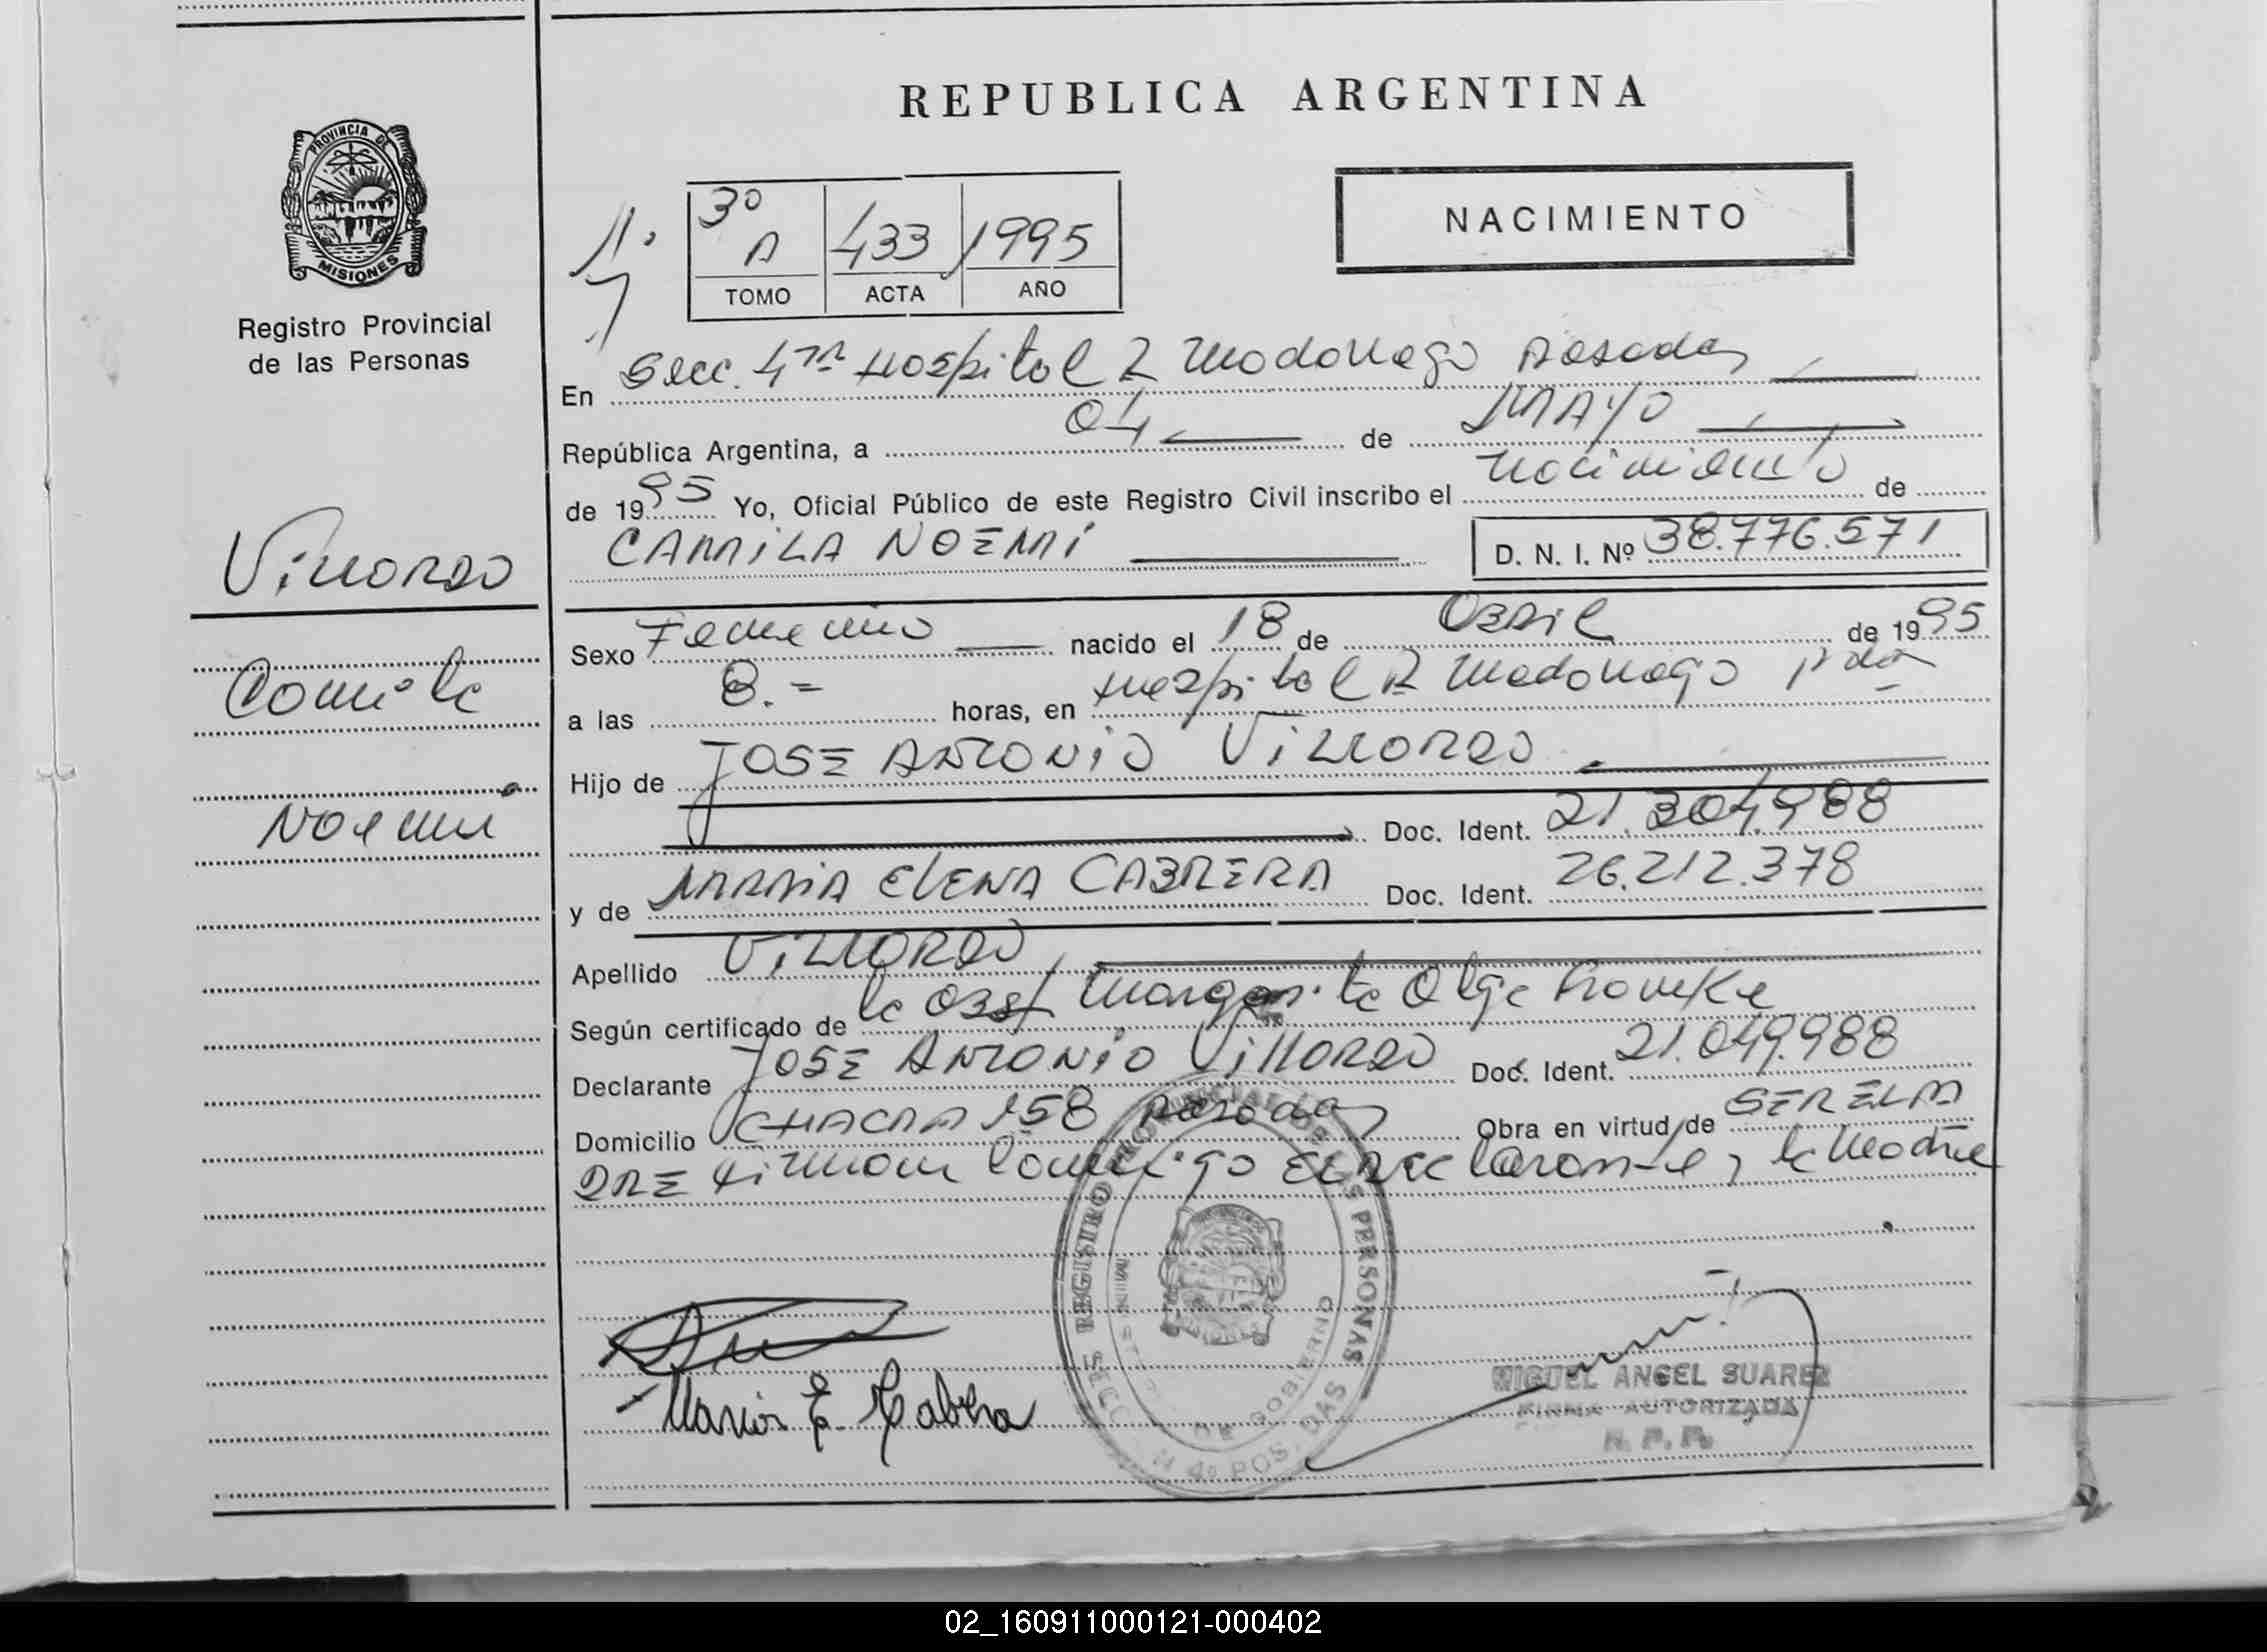 REPUBLICA ARGENTINA
PROVINCIA DE
MISIONES
Registro Provincial
de las Personas
3º
A 433 1995
TOMO ACTA AÑO
NACIMIENTO
En Secc. 4ta Hospital R Madariaga Posadas
República Argentina, a 04 de MAYO
de 1995 Yo, Oficial Público de este Registro Civil inscribo el nacimiento de
CAMILA NOEMI D. N. I. Nº 38.776.571
Villordo
Camila
Noemi
Sexo Femenino nacido el 18 de Abril de 1995
a las 8.= horas, en Hospital R Madariaga Pdas
Hijo de JOSE ANTONIO VILLORDO
Doc. Ident. 21.304.988
y de MARIA ELENA CABRERA Doc. Ident. 26.212.378
Apellido VILLORDO
Según certificado de la Obst Margarita Olga
Declarante JOSE ANTONIO VILLORDO Doc. Ident. 21.049.988
Domicilio CHACRA 158 Posadas Obra en virtud de SER EL PA
DRE firman conmigo El declarante y la Madre
REGISTRO PROVINCIAL DE LAS PERSONAS
DE GOBIERNO
4º POSADAS
Maria E. Cabrera
MIGUEL ANGEL SUAREZ
FIRMA AUTORIZADA
R. P. P.
02_160911000121-000402